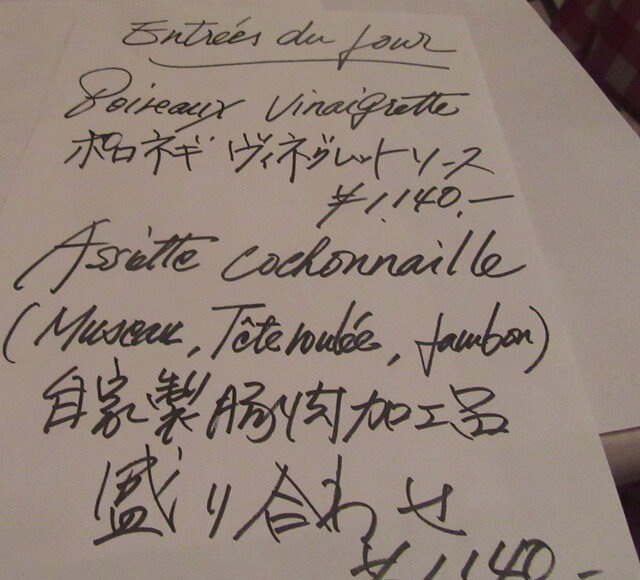 Entrées du Jour
Poireaux Vinaigrette
ポロネギ ヴィネグレットソース
¥1,140.—
Assiette cochonnaille
(Museau, Tête roulée, Jambon)
自家製豚肉加工品
盛り合わせ
¥1,140.—